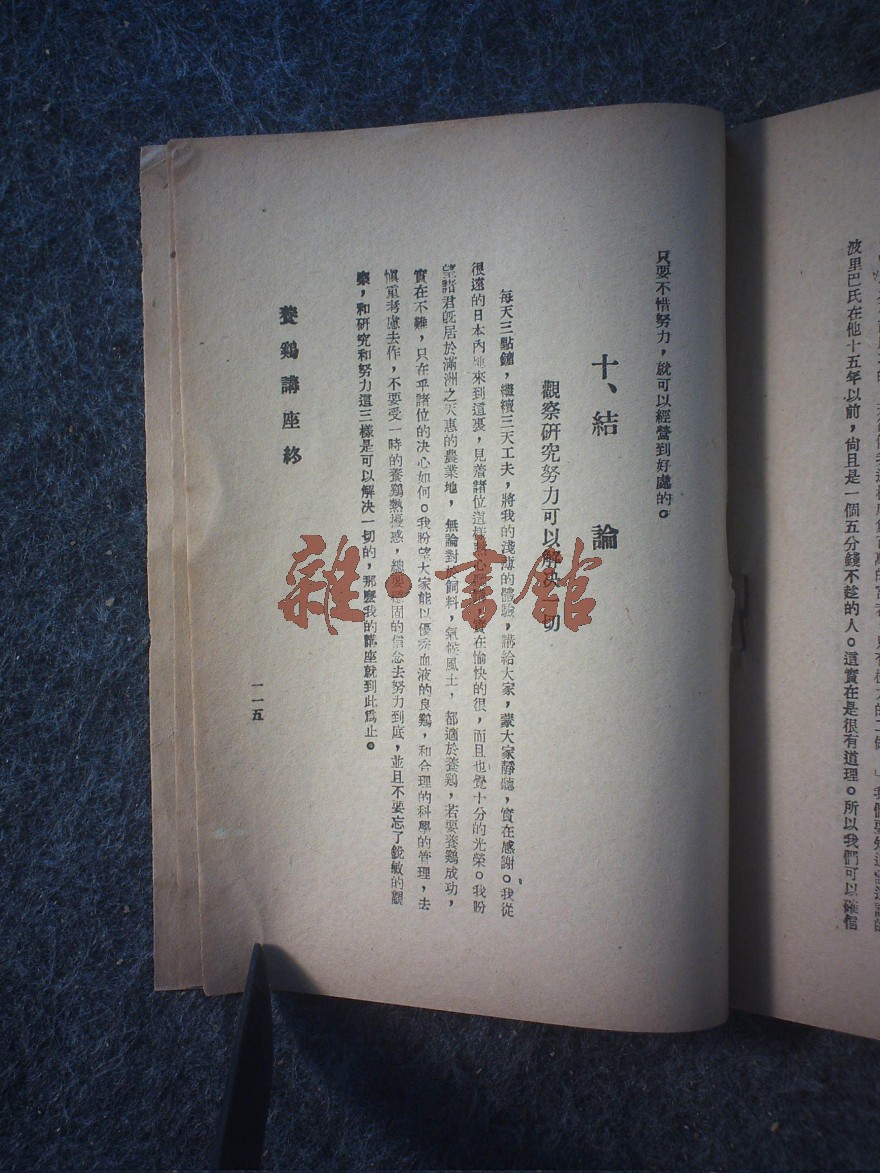 波里巴氏在他十五年以前，尙且是一個五分錢不趁的人。這實在是很有道理。所以我們可以確信
只要不惜努力，就可以經營到好處的。
十、結論
觀察硏究努力可以解決一切
每天三點鐘，繼續三天工夫，將我的淺薄的體驗，講給大家，蒙大家靜聽，實在感謝。我從
很遠的日本內地來到這裏，見着諸位這樣心實在愉快的很，而且也覺十分的光榮。我盼
望諸君旣居於滿洲之天惠的農業地，無論對於飼料，氣候風土，都適於養鷄，若要養鷄成功，
實在不難，只在乎諸位的決心如何。我盼望大家能以優秀血液的良鷄，和合理的科學的管理，去
愼重考慮去作，不要受一時的養鷄熱擾惑，總要固的信念去努力到底，並且不要忘了銳敏的觀
察，和硏究和努力這三樣是可以解決一切的，那麼我的講座就到此爲止。
養鷄講座終
一一五
雜·書館